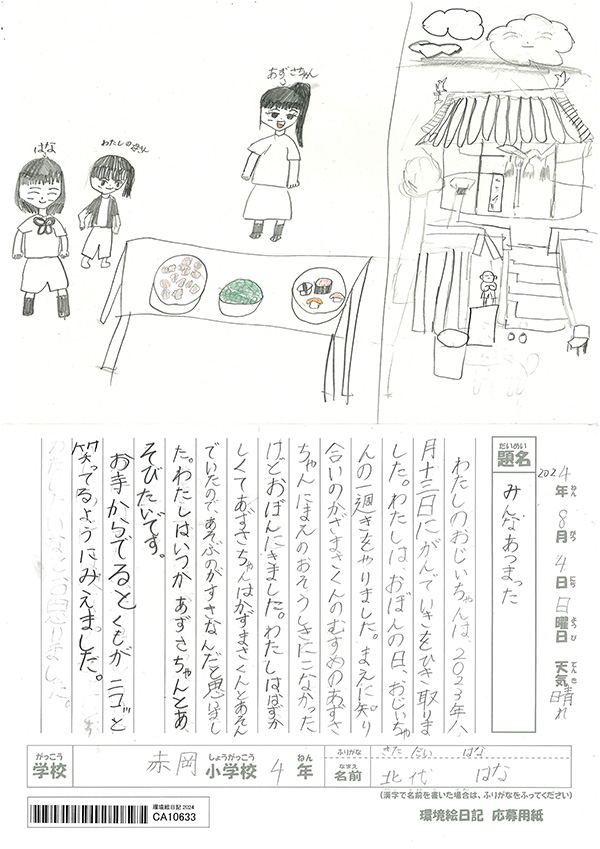 あずさちゃん
はな
だいめい
題名
みんなあつまった
2024年8月4日日曜日 天気晴れ
ねん
がつ
にち
ようび
てんき
わたしのおじぃちゃんは、2023年八
月十三日にがんでいきをひき取りま
した。わたしは、おぼんの日、おじぃちゃ
んの一週きをやりました。まえに知り
合いのかずまさくんのむすめのあずさ
ちゃんにまえのおそうしきにこなかった
けどおぼんにきました。わたしははずか
しくてあずさちゃんはかずまさくんとあそん
でいたので、あそぶのがすきなんだと思いまし
た。わたしはいつかあずさちゃんとあ
そびたいです。
お寺からでるとくもがニコッと
笑ってるようにみえました。
がっこう
学校
赤岡
しょうがっこう
小学校
4
ねん
年
ふりがな
きただい はな
なまえ
名前
北代 はな
(漢字で名前を書いた場合は、ふりがなをふってください)
環境絵日記2024
CA10633
環境絵日記 応募用紙